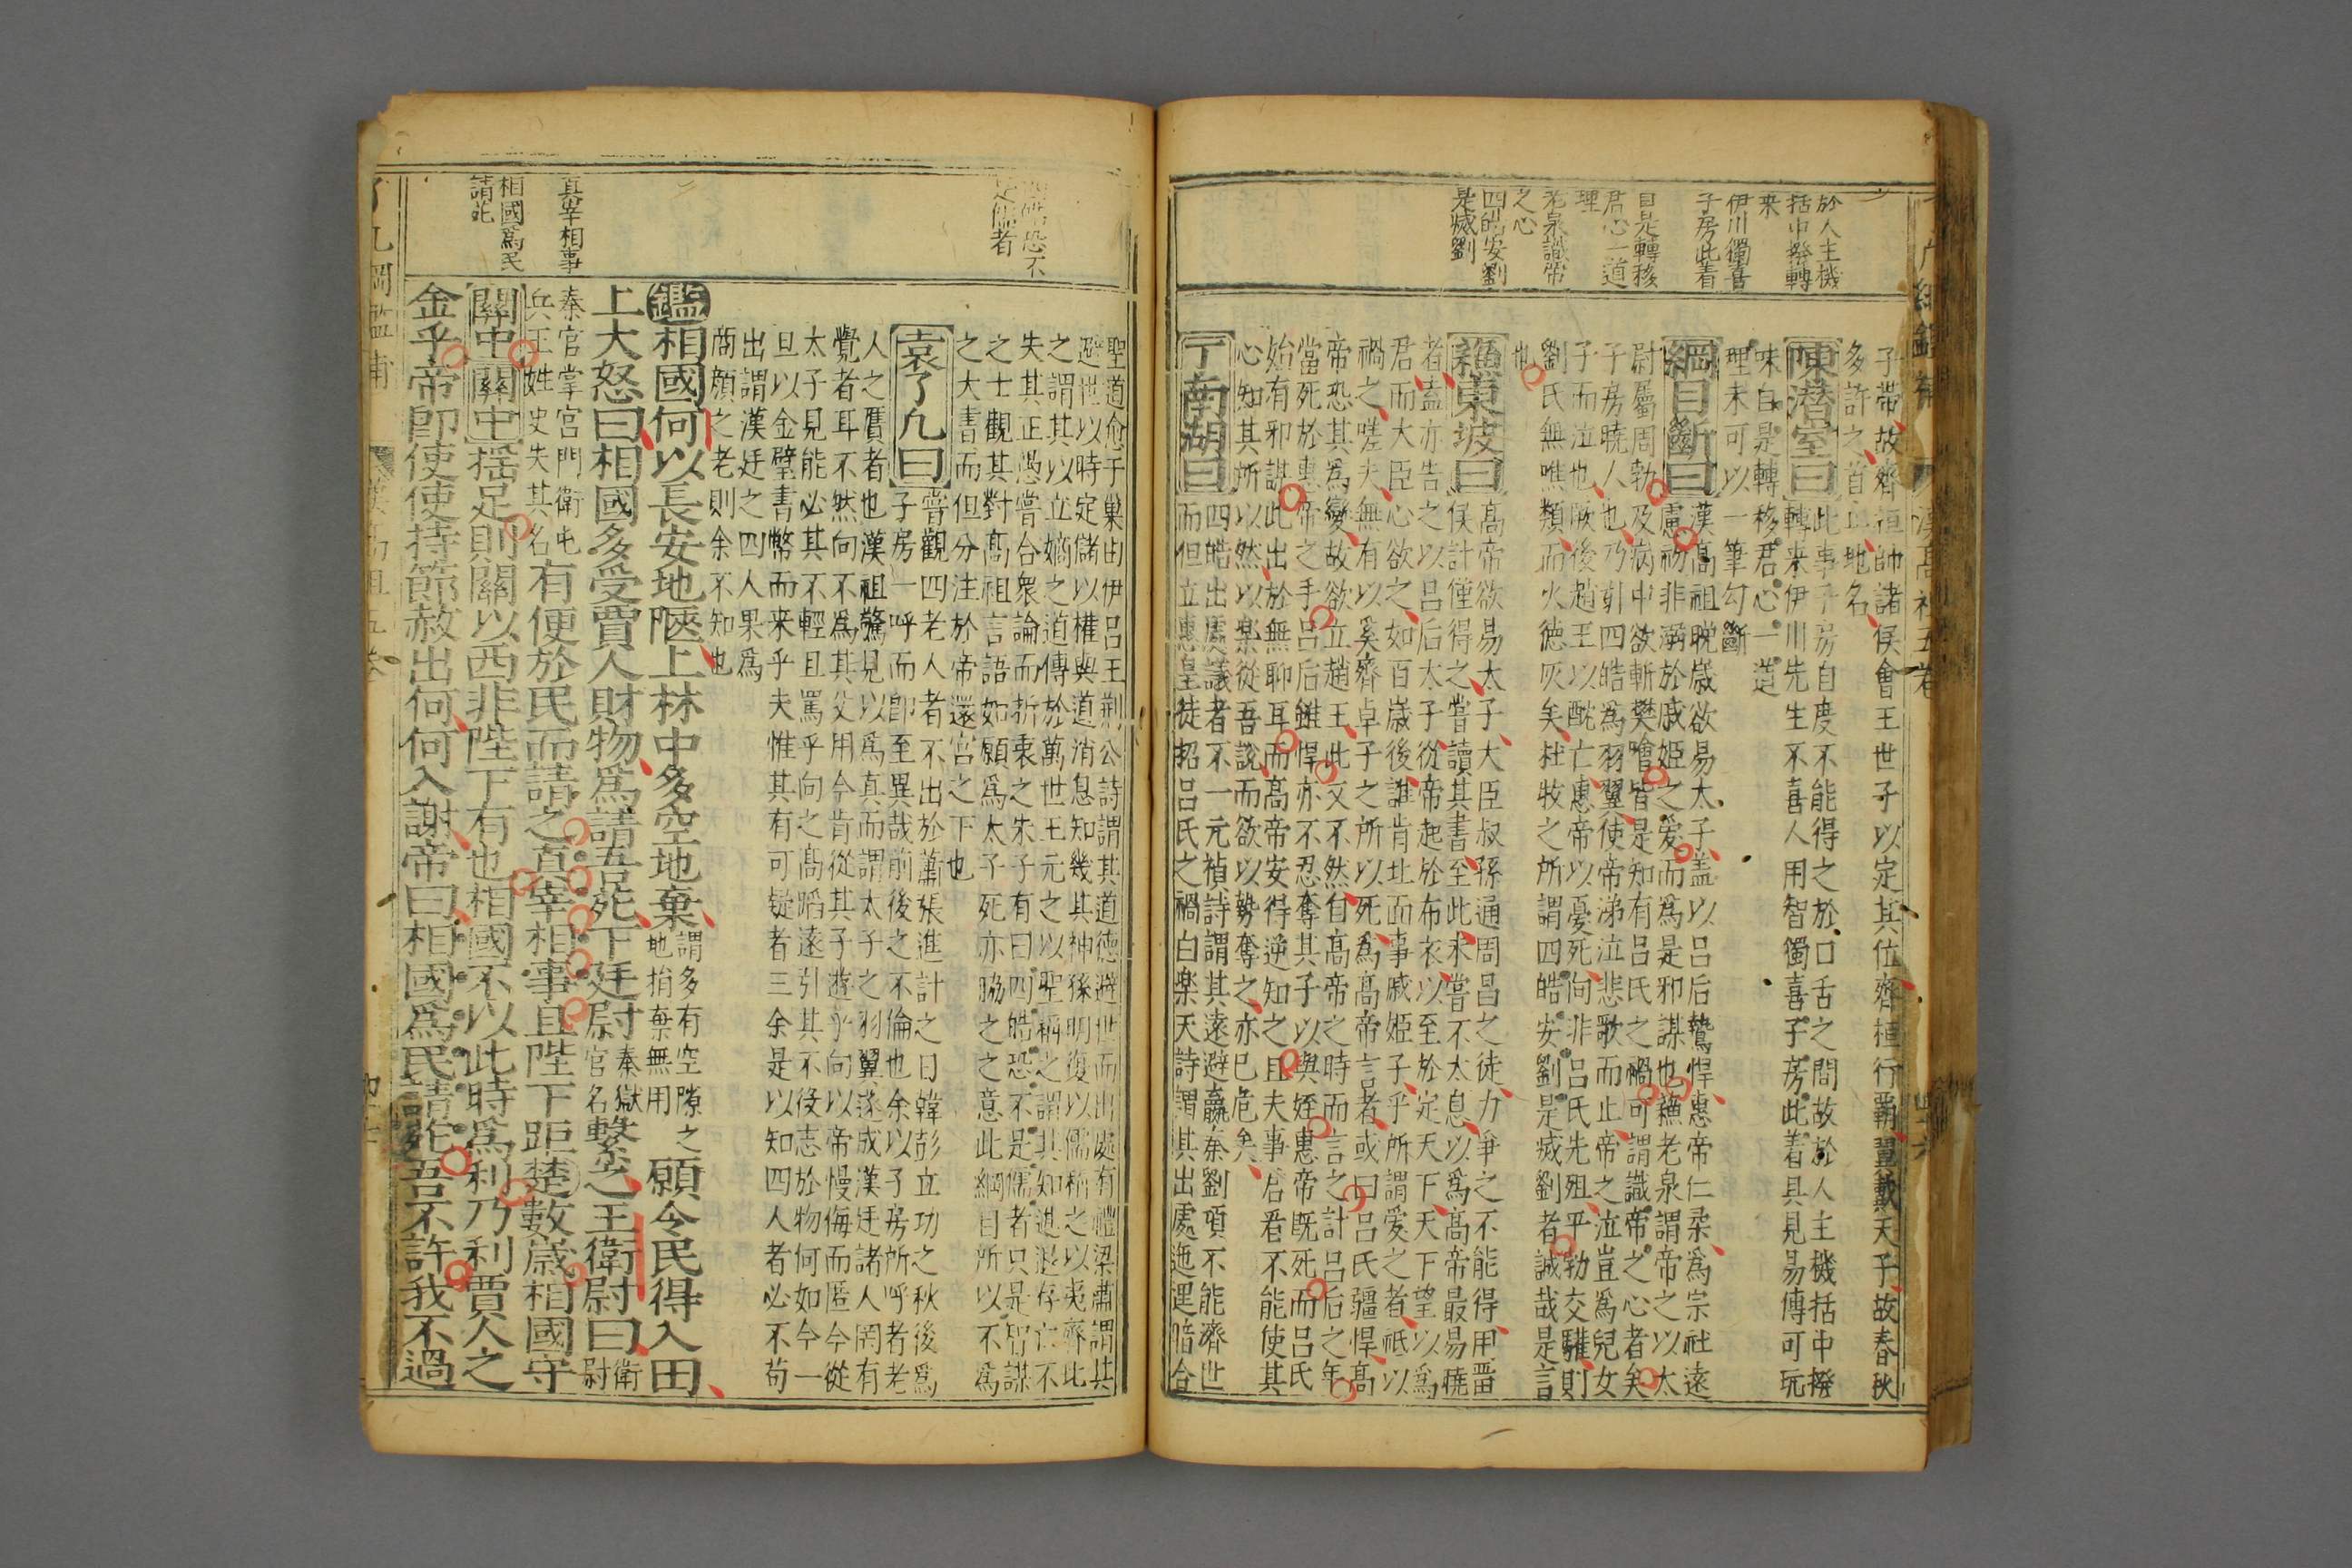 於人主機
括中撥轉
来
伊川獨喜
子房此着
自是轉移
君心一道
理
老泉識帝
之心
四皓安劉
是滅劉
子帶故齊桓帥諸侯會王世子以定其位齊桓行霸翼戴天子故春秋
多許之首止地名
陳潛室曰此事子房自度不能得之於口舌之間故於人主機括中撥
轉来伊川先生不喜人用智獨喜子房此着具見易傳可玩
味自是轉移君心一道
理未可以一筆勾斷
綱目斷曰漢高祖晚歳欲易太子盖以吕后鷙悍惠帝仁柔爲宗社遠
慮初非溺於戚姬之爱而爲是邪謀也蘓老泉謂帝之以太
尉屬周勃及病中欲斬樊噲皆是知有吕氏之禍可謂識帝之心者矣
子房曉人也乃引四皓爲羽翼使帝涕泣悲歌而止帝之泣豈爲兒女
子而泣也厥後趙王以酖亡惠帝以憂死向非吕氏先殂平勃交驩則
劉氏無噍類而火德灰矣杜牧之所謂四皓安劉是滅劉者誠哉是言
也
蘓東坡曰高帝欲易太子大臣叔孫通周昌之徒力争之不能得用畱
侯計僅得之嘗讀其書至此未嘗不太息以爲高帝最易曉
者盍亦告之以吕后太子從帝起於布衣以至於定天下天下望以爲
君而大臣心欲之如百歳後誰肯北面事戚姬子乎所謂爱之者祗以
禍之嗟夫無有以奚齊卓子之所以死爲高帝言者或曰吕氏疆悍高
帝恐其爲變故欲立趙王此又不然自高帝之時而言之計吕后之年
當死於惠帝之手吕后雖悍亦不忍奪其子以與姪惠帝既死而吕氏
始有邪謀此出於無聊耳而高帝安得逆知之且夫事君者不能使其
心知其所以然以樂從吾說而欲以勢奪之亦已危矣
丁南湖曰四皓出處議者不一元禎詩謂其遠避嬴秦劉項不能濟世
而但立惠皇徒招吕氏之禍白樂天詩謂其出處迤邐暗合
四皓恐不
是儒者
真宰相事
相國爲民
請死
聖道俞子巢由伊吕王荆公詩謂其道德避世而出處有禮梁肅謂其
避世以時定儲以權與道消息知幾其神孫明復以儒稱之以夷齊比
之謂其以立嫡之道傳於萬世王元之以聖稱之謂其知進退存亡不
失其正愚嘗合衆論而折衷之朱子有曰四皓恐不是儒者只是智謀
之士觀其對高祖言語如願爲太子死亦脇之之意此綱目所以不爲
之大書而但分注於帝還宫之下也
袁了凡曰嘗觀四老人者不出於蕭張進計之日韓彭立功之秋後爲
子房一呼而即至異哉前後之不倫也余以子房所呼者老
人之贋者也漢祖驚見以爲真而謂太子之羽翼遂成漢廷諸人罔有
覺者耳不然向不爲其父用今肯從其子遊乎向以帝慢侮而匿今從
太子見能必其不輕且罵乎向之高蹈遠引其不役志於物何如今一
旦以金璧書幣而来乎夫惟其有可疑者三余是以知四人者必不苟
出謂漢廷之四人果爲
商顔之老則余不知也
鑑相國何以長安地陿上林中多空地棄謂多有空隙之地捐棄無用願令民得入田
上大怒曰相國多受賈人財物爲請吾苑下廷尉秦獄官名繫之王衛尉曰衛尉
秦官掌宫門衛屯兵王姓史失其名有便於民而請之真宰相事且陛下距楚數歳相國守
關中關中揺足則關以西非陛下有也相國不以此時爲利乃利賈人之
金乎帝即使使持節赦出何何入謝帝曰相國爲民請苑吾不許我不過